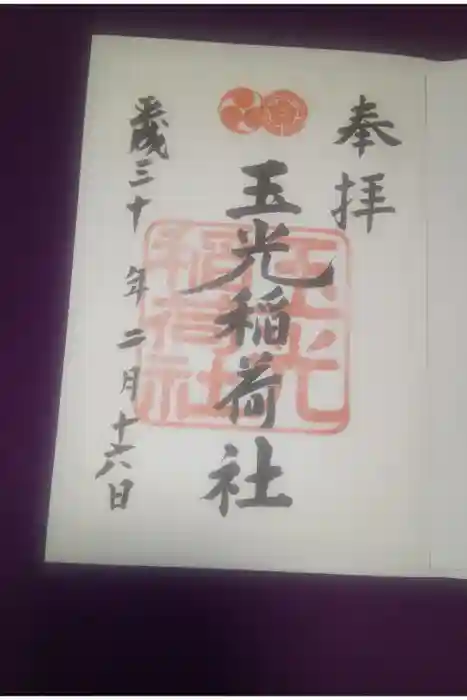 奉拝
玉光稲荷社
玉光
稲荷社
平成三十年二月十六日